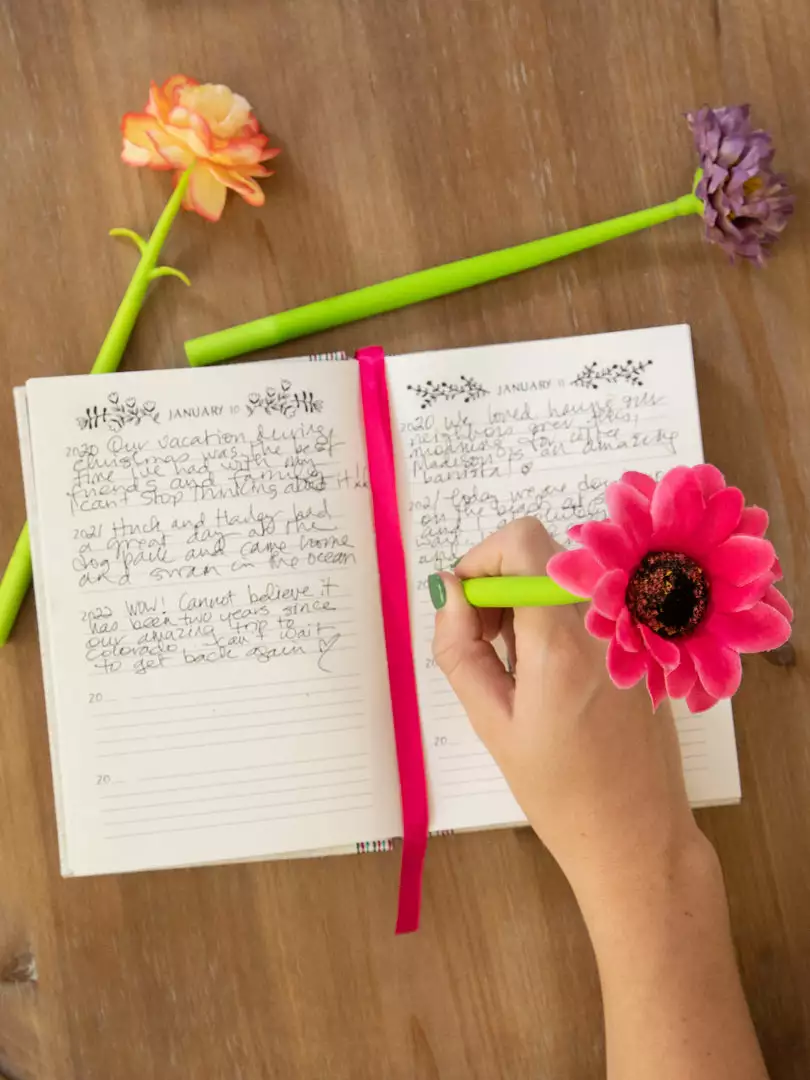 JANUARY 10
2020 Our vacation during
Christmas was the best
time we had with my
friends and family
I can't stop thinking about it!!
2021 Huck and Harley had
a great day at the
dog park and came home
and swam in the ocean
2022 WOW! Cannot believe it
has been two years since
our amazing trip to
Colorado. Can't wait
to get back again
20
20
JANUARY 11
2020 We loved having our
neighbors over this
morning for coffee
Madison is an amazing
barista!
2021 Today we are
on the beach at
20